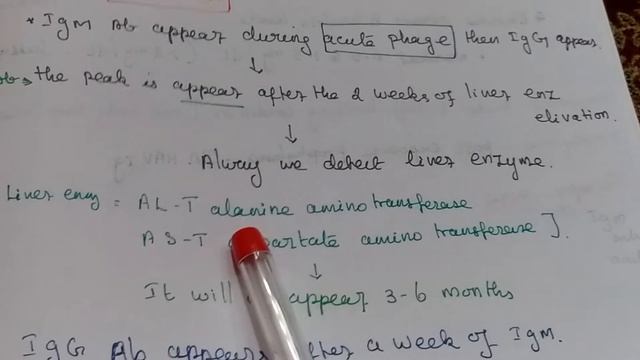 * IgM Ab appear during acute phage then IgG appear.
the peak is appear after the 2 weeks of liver enz
elivation.
Always we detect liver enzyme.
Liver enzy = AL-T alanine amino transferase
AS-T partate amino transferase].
It will appear 3-6 months
IgG Ab appears after a week of IgM.